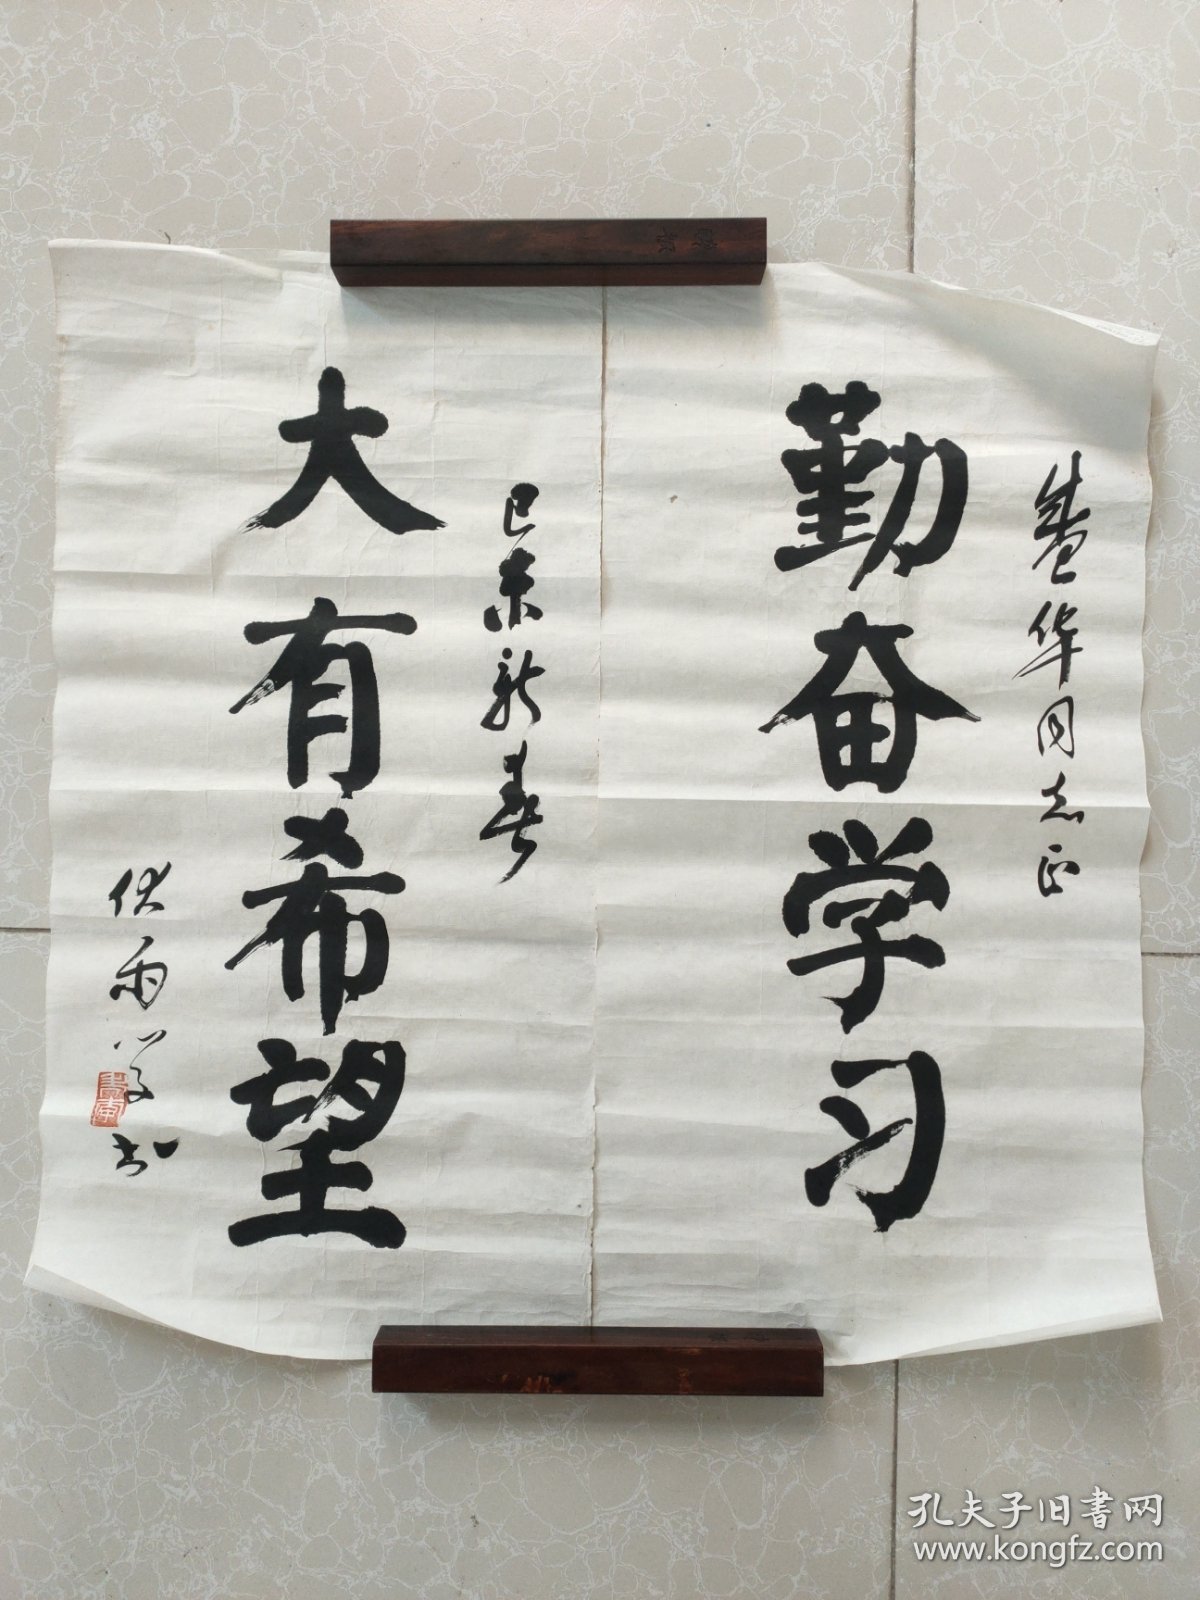 华同志正
勤奋学习
己未新春
大有希望
书
孔夫子旧書网
www.kongfz.com